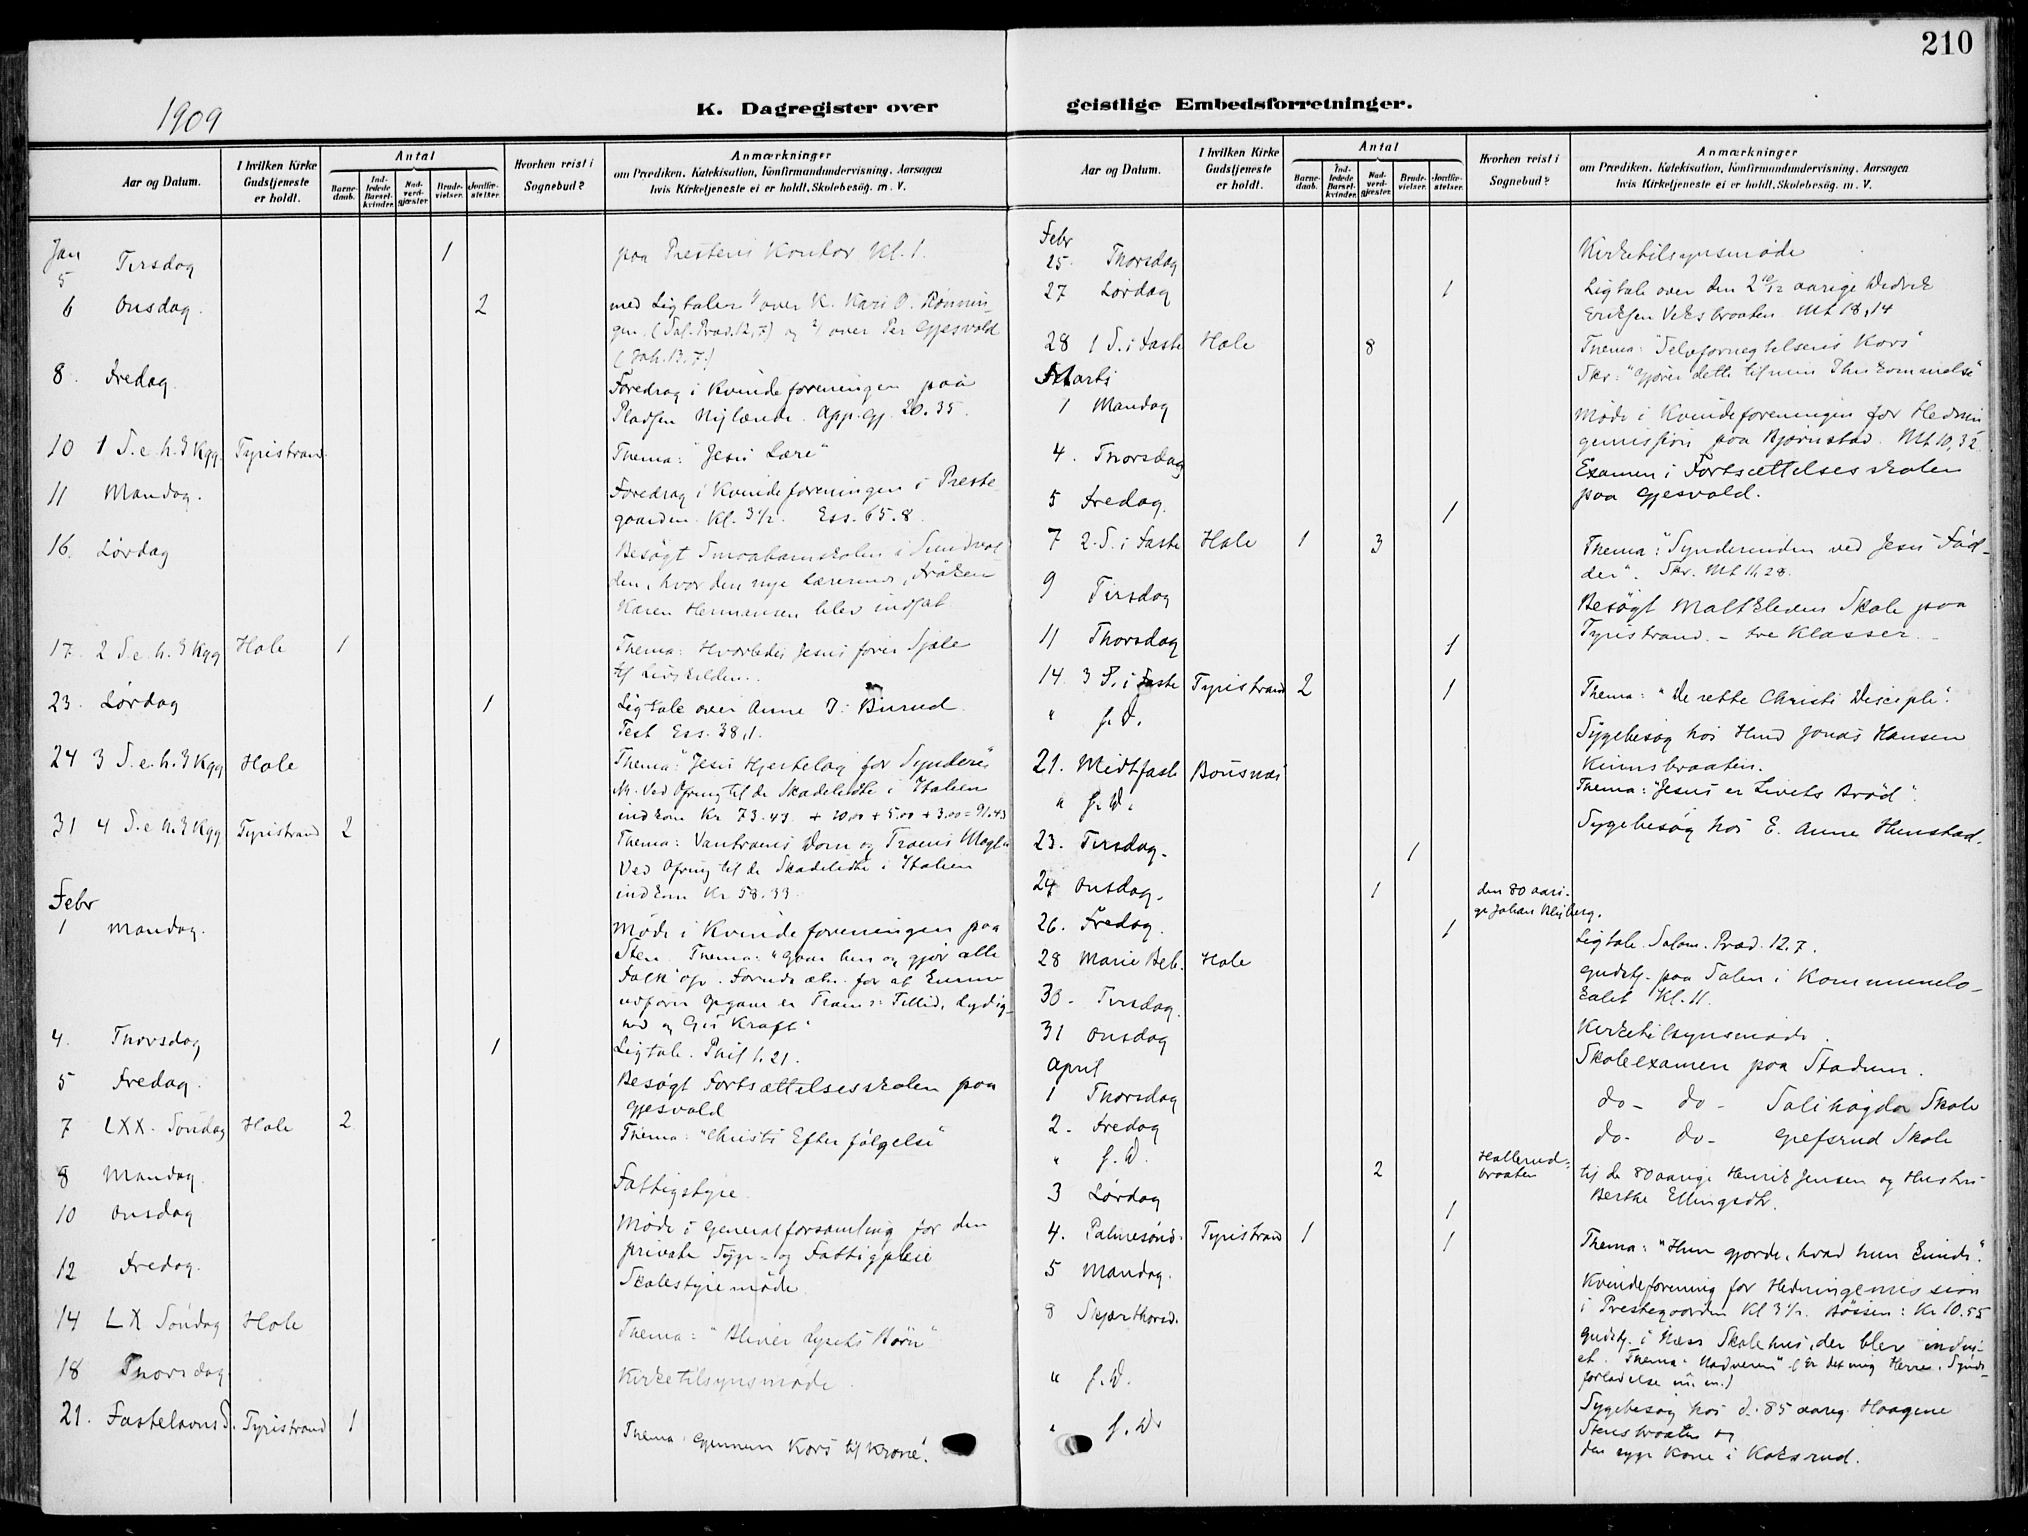 210
1909
K. Dagregister over geistlige Embedsforretninger.
Aar og Datum.
I hvilken Kirke Gudstjeneste er holdt.
Antal
Barnedaab.
Indledede Barselkvinder.
Nadverdgjæster.
Brudevielser.
Jordfæstelser.
Hvorhen reist i Sognebud?
Anmærkninger
om Prædiken, Katekisation, Konfirmandundervisning, Aarsagen
hvis Kirketjeneste ei er holdt, Skolebesøg. m. V.
Jan
5 Tirsdag 1 paa Prestens Kontor Kl. 1.
6 Onsdag. 2 med Ligtaler 1/ over K. Kari O. Rønnin-
gen, (Sal. Præd. 12,7) og 2/ over Per Gjesvold
(Joh. 13, 7.)
8. Fredag. Foredrag i Kvindeforeningen paa
Pladsen Nylænde. App. gj. 20. 35.
10 1 S. e. h. 3 Kgg. Tyristrand. Thema: "Jesu Lære"
11 Mandag. Foredrag i Kvindeforeningen i Preste-
gaarden. Kl. 3½. Ess. 65. 8.
16. Lørdag Besøgt Smaabarnskolen i Sundvol
den, hvor den nye Lærerinde, Frøken
Karen Hermansen blev indsat
17. 2 S. e. h. 3 Kgg Hole 1 Thema: Hvorledes Jesus fører Sjæle
til Livskilden.
23. Lørdag 1 Ligtale over Anne J. Burud.
Text Ess. 38,1.
24 3 S. e. h. 3 Kgg Hole Thema: "Jesu Hjertelag for Syndere"
M. Ved Ofring til de Skadelidte i Italien
indkom Kr 73.43 + 10.00 + 5.00 + 3.00 = 91.43
31 4 S. e h. 3 Kgg Tyristrand 2 Thema: Vantroens Dom og Troens
Ved Ofring til de Skadelidte i Italien
indkom Kr 58.33.
Febr
1 Mandag. Møde i Kvindeforeningen paa
Sten. Thema: "Gaar hen og gjør alle
Folk" osv.
og Guds Kraft"
4. Thorsdag 1 Ligtale. Phil 1. 21.
5 Fredag. Besøgt Fortsættelsesskolen paa
Gjesvold
7 LXX. Søndag Hole 2 Thema: "Christi Efterfølgelse"
8 Mandag. Fattigstyre.
10 Onsdag Møde i Generalforsamling for den
private Syge- og Fattigpleie
12 Fredag. Skolestyremøde.
14 LX Søndag Hole Thema: "Bliver Lysets Børn"
18 Thorsdag. Kirketilsynsmøde.
21. FastelavnsS. Tyristrand 1 Thema: Gjennem Kors til Krone!
Aar og Datum.
I hvilken Kirke Gudstjeneste er holdt.
Antal
Barnedaab.
Indledede Barselkvinder.
Nadverdgjæster.
Brudevielser.
Jordfæstelser.
Hvorhen reist i Sognebud?
Anmærkninger
om Prædiken, Katekisation, Konfirmandundervisning, Aarsagen
hvis Kirketjeneste ei er holdt, Skolebesøg. m. V.
Febr
25. Thorsdag Kirketilsynsmøde
27 Lørdag 1 Ligtale over den 2 10/12 aarige Dedrik
Eriksen Veksbraaten. Mt 18,14
28 1 S. i Faste Hole 8 Thema: "Selvfornegtelsens Kors"
Skr: "Gjører dette til min Ihukommelse"
Marts
1 Mandag Møde i Kvindeforeningen for Hednin
gemission paa Bjørnstad. Mt 10,32.
4. Thorsdag Examen i Fortsættelsesskolen
paa Gjesvold.
5 Fredag. 1
7 2. S. i Faste Hole 1 3 Thema: "Synderinden ved Jesu Fød-
der". Skr. Mt 11,28.
9 Tirsdag Besøgt Maltklevens Skole paa
Tyristrand. - tre Klasser. -
11 Thorsdag 1
14. 3 S. i Faste Tyristrand 2 1 Thema: "De rette Christi Disciple".
" s. D. Sygebesøg hos Jonas Hansen
braaten.
21. Midtfaste Bønsnæs Thema: "Jesus er Livets Brød".
" s. D. Sygebesøg hos E. Anne Hunstad.
23. Tirsdag. 1
24 Onsdag. 1 den 80 aari-
ge Johan
26. Fredag. 1 Ligtale. Salom. Præd. 12.7.
28 Marie Beb. Hole Gudstj. paa Salen i Kommunelo-
kalet Kl. 11.
30. Tirsdag. Kirketilsynsmøde.
31 Onsdag Skoleexamen paa Stadum.
April
1 Thorsdag do- do- Solihøgda Skole
2. Fredag do- do- Gjefsrud Skole
" s. D. 2 Hallerud-
braaten til de 80 aarige Henrik Jensen og Hustru
Berthe Ellingsdtr.
3 Lørdag 1
4. Palmesønd. Tyristrand 1 1 Thema: "Hun gjorde, hvad hun kunde".
5 Mandag. Kvindeforening for Hedningemission
i Prestegaarden Kl 3½. Bøssen: Kr 10.55
8 Skjærthorsd. Gudstj. i Næss Skolehus, der blev indvi-
et. Thema: "Nadveren" (Er det mig Herre. Synds
forladelse m. m.)
" s. D. Sygebesøg hos d. 85 aarig Haagene
Stensbraaten og
" s. D. den syge Kone i Koksrud.